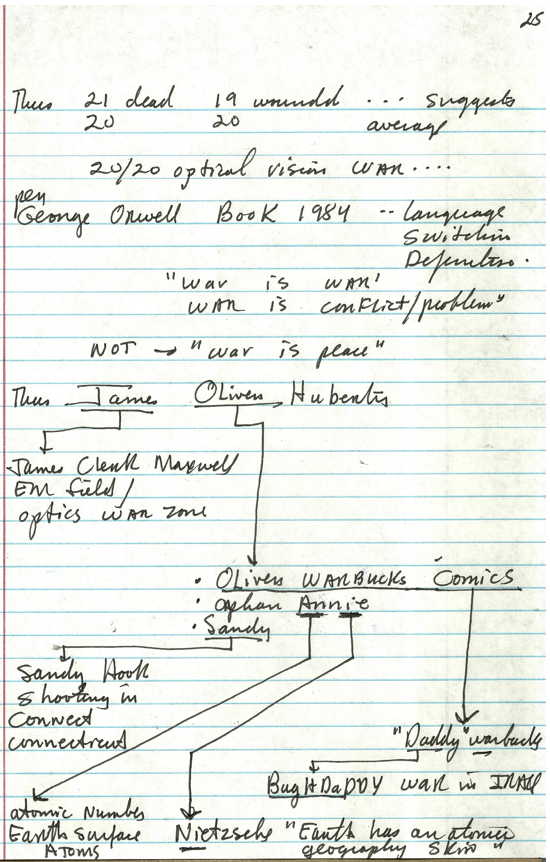 25
Thus 21 dead 19 wounded ... suggests
20 20 average
20/20 optical vision WAR....
pen
George Orwell Book 1984 -- Language
Switchin
"war is WAR'
WAR is conflict/problem"
NOT → "war is peace"
Thus James Oliver Huberty
James Clerk Maxwell
EM field/
optics WAR zone
• Oliver WARBucks Comics
• orphan Annie
• Sandy
Sandy Hook
shooting in
Connect
connecticut
"Daddy" warbucks
BagHDaDDY war in IRAQ
atomic Number
Earth surface
Atoms
Nietzsche "Earth has an atomic
geography skin"